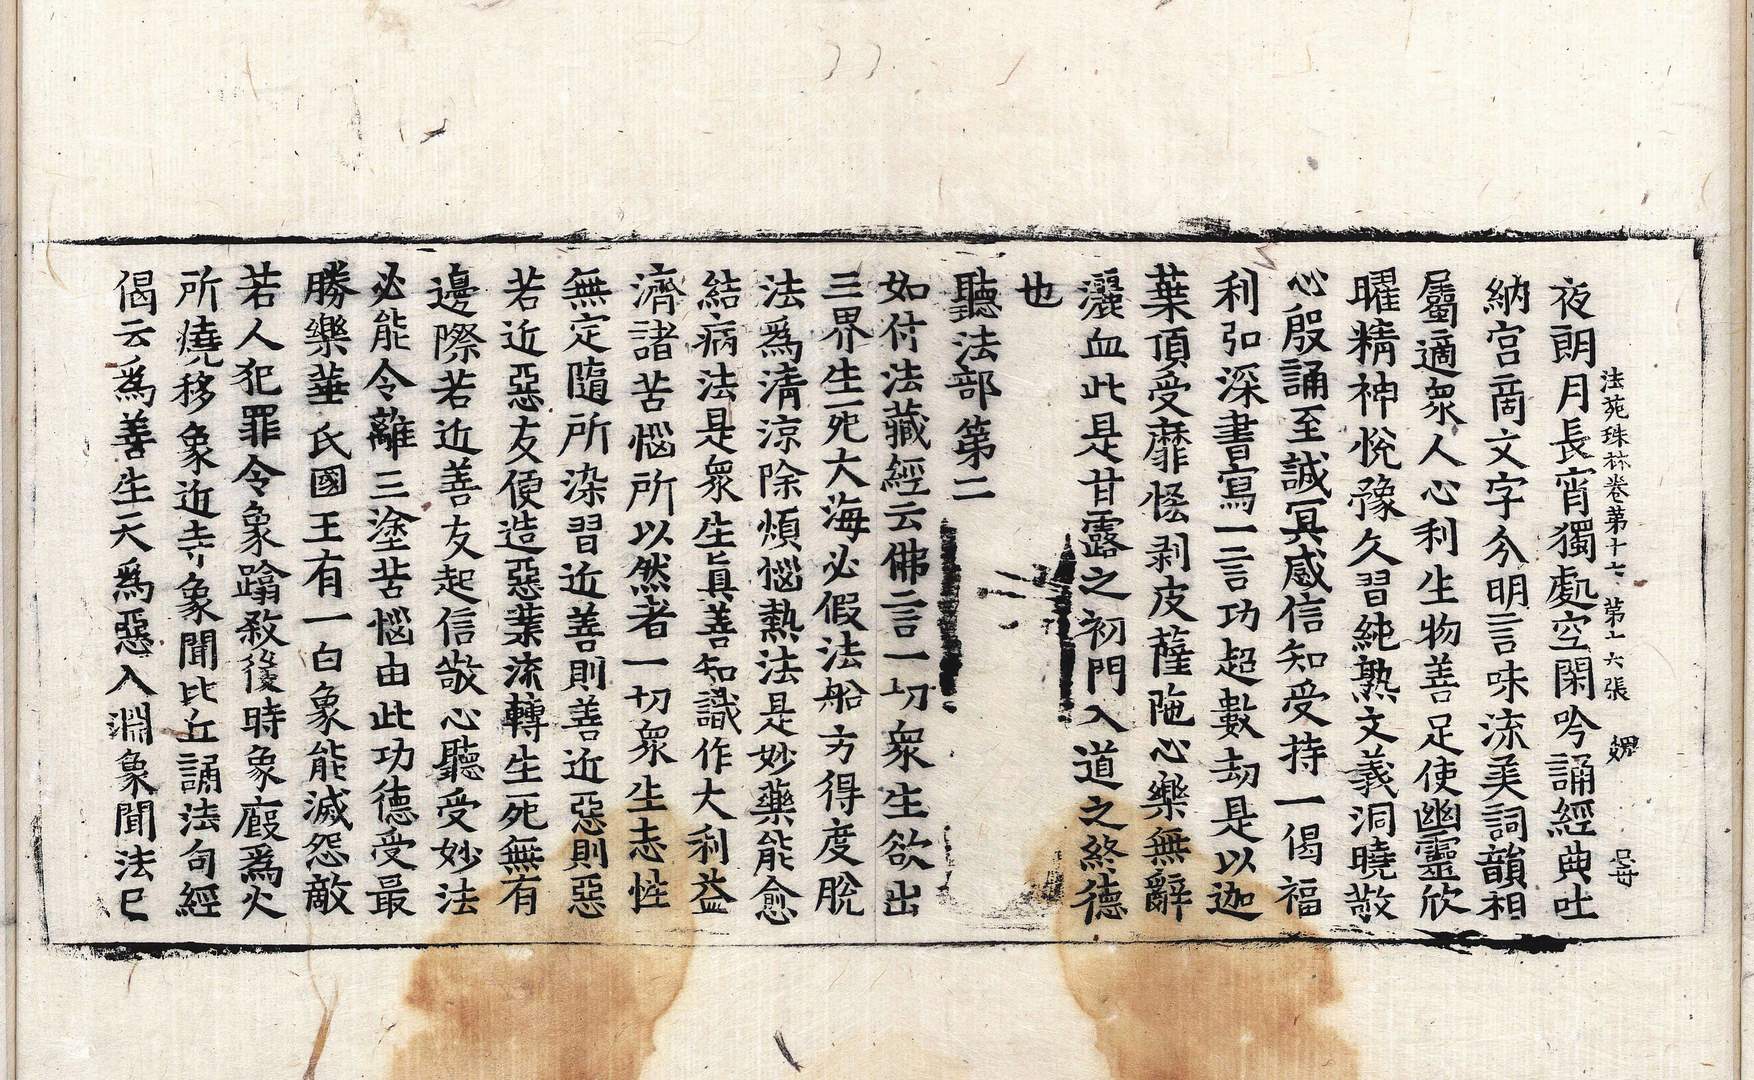 法苑珠林卷苐十七 第十六張
夜朗月長宵獨處空閑吟誦經典吐
納宮商文字分明言味流美詞韻相
屬適衆人心利生物善足使幽靈欣
曜精神悅豫久習純熟文義洞曉敬
心殷誦至誠冥感信知受持一偈福
利弘深書寫一言功超數劫是以迦
葉頂受靡恡剥皮薩陁心樂無辭
灑血此是甘露之初門入道之終德
也
聽法部第二
如付法藏經云佛言一切衆生欲出
三界生死大海必假法船方得度脫
法爲清涼除煩惱熱法是妙藥能愈
結病法是衆生真善知識作大利益
濟諸苦惱所以然者一切衆生志性
無定隨所染習近善則善近惡則惡
若近惡友便造惡業流轉生死無有
邊際若近善友起信敬心聽受妙法
必能令離三塗苦惱由此功德受最
勝樂華氏國王有一白象能滅怨敵
若人犯罪令象蹋殺後時象廐爲火
所燒移象近寺象聞比丘誦法句經
偈云爲善生天爲惡入淵象聞法已